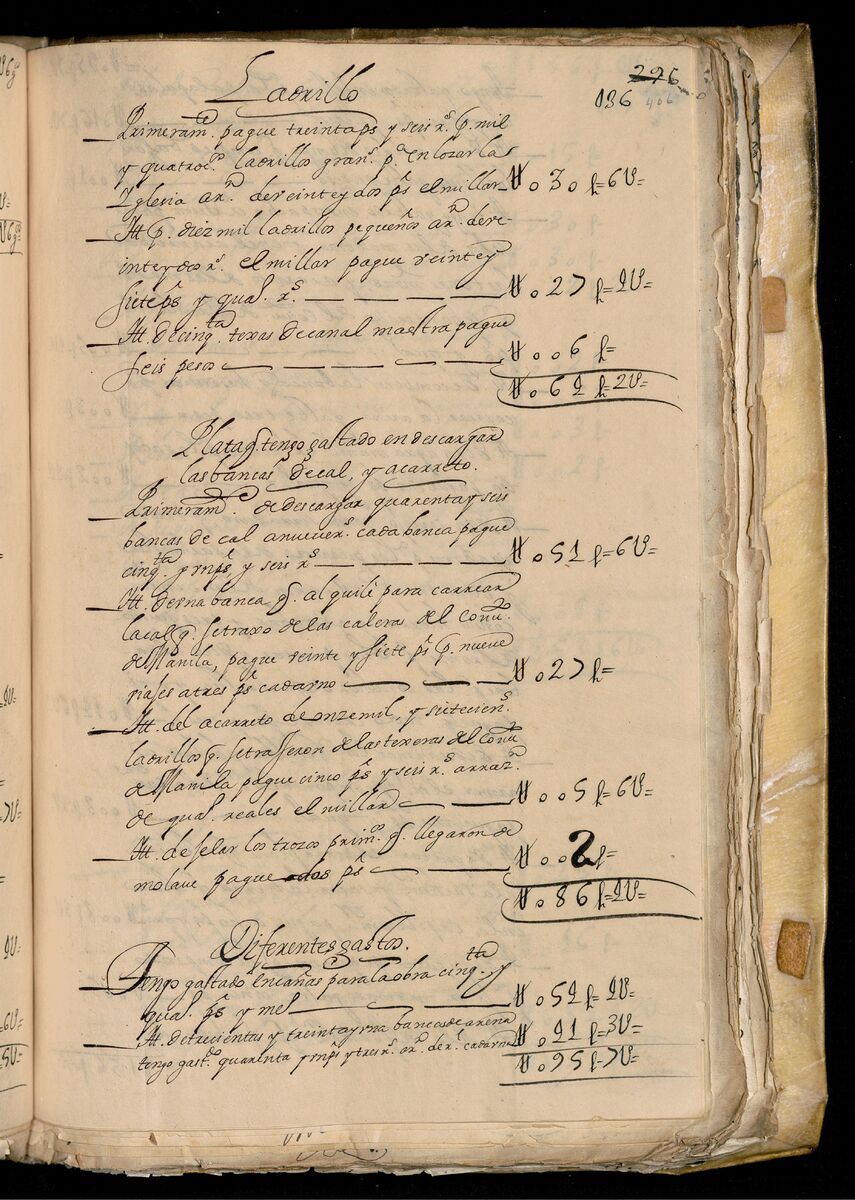 296
136
406
Ladrillo
Primeram.te pague treinta p.s y seis r.s p. mil
y quatroc.s ladrillos gran.s p.a enlozar las
Iglesia a r.n de veinte y dos p.s el millar U o 3 o p=6U=
Itt. p. diez mil ladrillos pequeños a r.n de ve-
inte y dos r.s el millar pague veinte y
siete p.s y quat. r.s U o 27 p=4U=
Itt. de cinq.ta texas de canal maestra pague
seis pesos U o o 6 p=
U o 64 p=2U=
Plata q. tengo gastado en descargar
las bancas de cal, y acarreto.
Primeram.te de descargar quarenta y seis
bancas de cal a nueve r.s cada banca pague
cinq.ta y un p.s y seis r.s U o 51 p=6U=
Itt. de una banca q. alquile para carrear
la cal q. se traxo de las caleras del Conv.to
de Manila, pague veinte y siete p.s p. nueve
viajes a tres p.s cada uno U o 27 p=
Itt. del acarreto de onze mil, y sietecien.s
ladrillos q. se trasseron de las texeras del Conv.to
de Manila pague cinco p.s y seis r.s a rraz.n
de quat. reales el millar U o o 5 p=6U=
Itt. de selar los trozos prim.os q. llegaron de
molave pague dos p.s U o o 2 p=
U o 86 p=4U=
Diferentes gastos.
Tengo gastado en cañas para la obra cinq.ta y
quat. p.s y me.o U o 54 p=4U=
Itt. de trecientas y treinta y una bancas de arena U o 41 p=3U=
tengo gast.do quarenta y un p.s y tres r.s a r.n de r.l cada una
U o 95 p=7U=